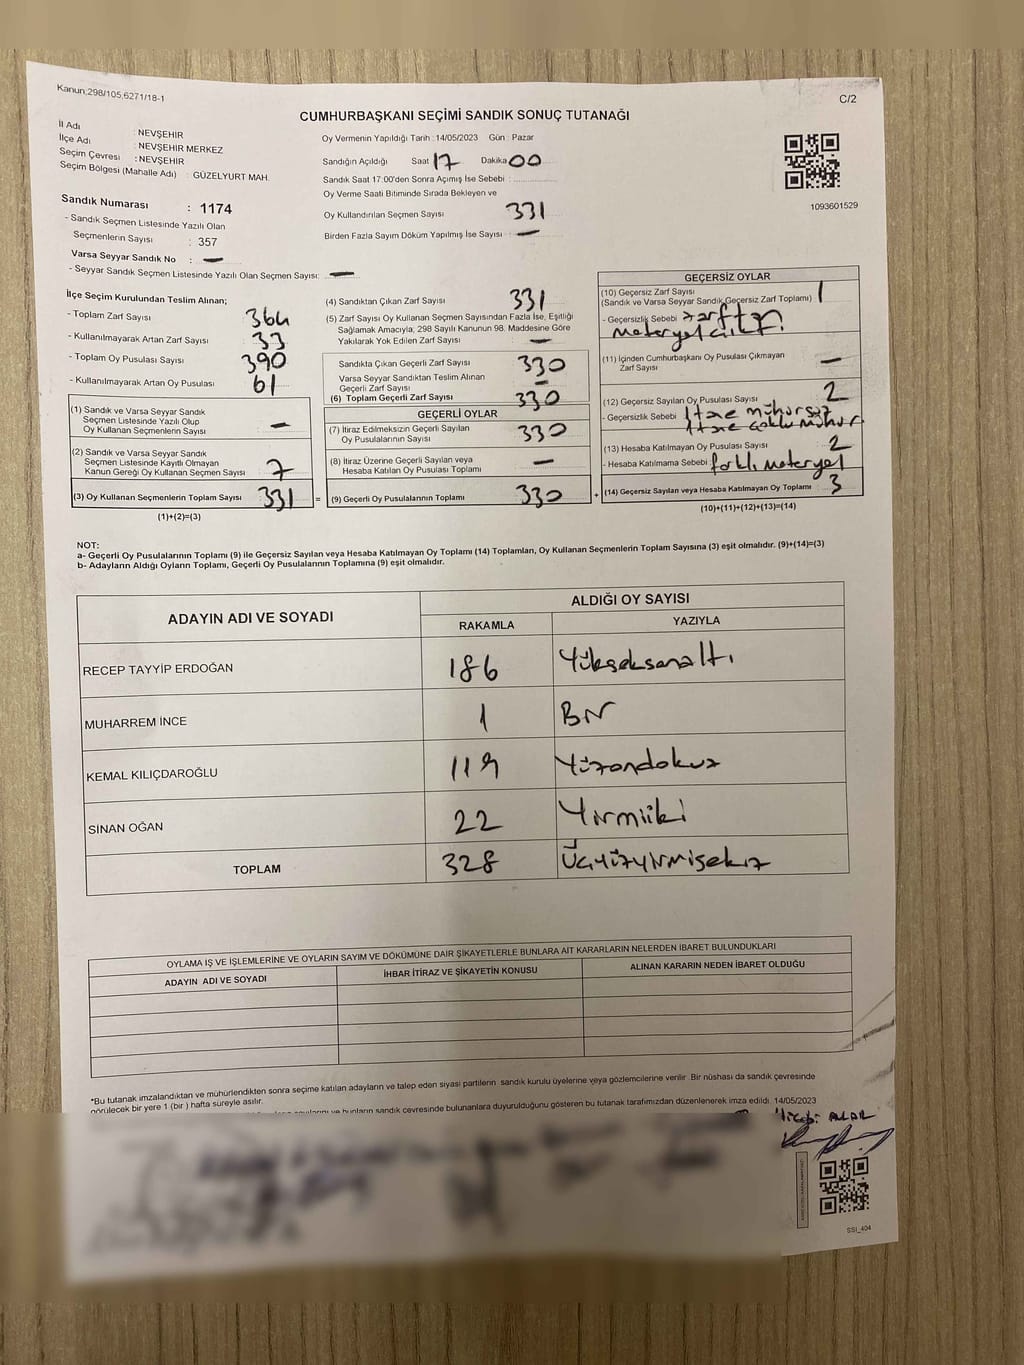 Kanun:298/105,6271/18-1
C/2
CUMHURBAŞKANI SEÇİMİ SANDIK SONUÇ TUTANAĞI
İl Adı : NEVŞEHİR
İlçe Adı : NEVŞEHİR MERKEZ
Seçim Çevresi : NEVŞEHİR
Seçim Bölgesi (Mahalle Adı) : GÜZELYURT MAH.
Sandık Numarası : 1174
- Sandık Seçmen Listesinde Yazılı Olan
Seçmenlerin Sayısı : 357
Varsa Seyyar Sandık No : —
- Seyyar Sandık Seçmen Listesinde Yazılı Olan Seçmen Sayısı: —
Oy Vermenin Yapıldığı Tarih : 14/05/2023 Gün : Pazar
Sandığın Açıldığı Saat 17 Dakika 00
Sandık Saat 17:00'den Sonra Açımış İse Sebebi :
Oy Verme Saati Bitiminde Sırada Bekleyen ve
Oy Kullandırılan Seçmen Sayısı 331
Birden Fazla Sayım Döküm Yapılmış İse Sayısı : —
1093601529
İlçe Seçim Kurulundan Teslim Alınan;
- Toplam Zarf Sayısı 364
- Kullanılmayarak Artan Zarf Sayısı 33
- Toplam Oy Pusulası Sayısı 390
- Kullanılmayarak Artan Oy Pusulası 61
(1) Sandık ve Varsa Seyyar Sandık
Seçmen Listesinde Yazılı Olup
Oy Kullanan Seçmenlerin Sayısı —
(2) Sandık ve Varsa Seyyar Sandık
Seçmen Listesinde Kayıtlı Olmayan
Kanun Gereği Oy Kullanan Seçmen Sayısı 7
(3) Oy Kullanan Seçmenlerin Toplam Sayısı 331
(1)+(2)=(3)
(4) Sandıktan Çıkan Zarf Sayısı 331
(5) Zarf Sayısı Oy Kullanan Seçmen Sayısından Fazla İse, Eşitliği
Sağlamak Amacıyla, 298 Sayılı Kanunun 98. Maddesine Göre
Yakılarak Yok Edilen Zarf Sayısı —
Sandıkta Çıkan Geçerli Zarf Sayısı 330
Varsa Seyyar Sandıktan Teslim Alınan
Geçerli Zarf Sayısı —
(6) Toplam Geçerli Zarf Sayısı 330
GEÇERLİ OYLAR
(7) İtiraz Edilmeksizin Geçerli Sayılan
Oy Pusulalarının Sayısı 330
(8) İtiraz Üzerine Geçerli Sayılan veya
Hesaba Katılan Oy Pusulası Toplamı —
= (9) Geçerli Oy Pusulalarının Toplamı 330 +
GEÇERSİZ OYLAR
(10) Geçersiz Zarf Sayısı 1
(Sandık ve Varsa Seyyar Sandık Geçersiz Zarf Toplamı)
- Geçersizlik Sebebi zarftan
(11) İçinden Cumhurbaşkanı Oy Pusulası Çıkmayan
Zarf Sayısı —
(12) Geçersiz Sayılan Oy Pusulası Sayısı 2
- Geçersizlik Sebebi 1 tane mühürsüz
1 tane çoklu mühür
(13) Hesaba Katılmayan Oy Pusulası Sayısı 2
- Hesaba Katılmama Sebebi farklı materyel
(14) Geçersiz Sayılan veya Hesaba Katılmayan Oy Toplamı 3
(10)+(11)+(12)+(13)=(14)
NOT:
a- Geçerli Oy Pusulalarının Toplamı (9) ile Geçersiz Sayılan veya Hesaba Katılmayan Oy Toplamı (14) Toplamları, Oy Kullanan Seçmenlerin Toplam Sayısına (3) eşit olmalıdır. (9)+(14)=(3)
b- Adayların Aldığı Oyların Toplamı, Geçerli Oy Pusulalarının Toplamına (9) eşit olmalıdır.
ADAYIN ADI VE SOYADI ALDIĞI OY SAYISI
RAKAMLA YAZIYLA
RECEP TAYYİP ERDOĞAN 186 Yükseksenaltı
MUHARREM İNCE 1 Bir
KEMAL KILIÇDAROĞLU 119 Yüzondokuz
SİNAN OĞAN 22 Yirmiiki
TOPLAM 328 Üçyüzyirmisekiz
OYLAMA İŞ VE İŞLEMLERİNE VE OYLARIN SAYIM VE DÖKÜMÜNE DAİR ŞİKAYETLERLE BUNLARA AİT KARARLARIN NELERDEN İBARET BULUNDUKLARI
ADAYIN ADI VE SOYADI İHBAR İTİRAZ VE ŞİKAYETİN KONUSU ALINAN KARARIN NEDEN İBARET OLDUĞU
*Bu tutanak imzalandıktan ve mühürlendikten sonra seçime katılan adayların ve talep eden siyasi partilerin sandık kurulu üyelerine veya gözlemcilerine verilir .Bir nüshası da sandık çevresinde
görülecek bir yere 1 (bir ) hafta süreyle asılır.
sandık çevresinde bulunanlara duyurulduğunu gösteren bu tutanak tarafımızdan düzenlenerek imza edildi. 14/05/2023
SSI_404